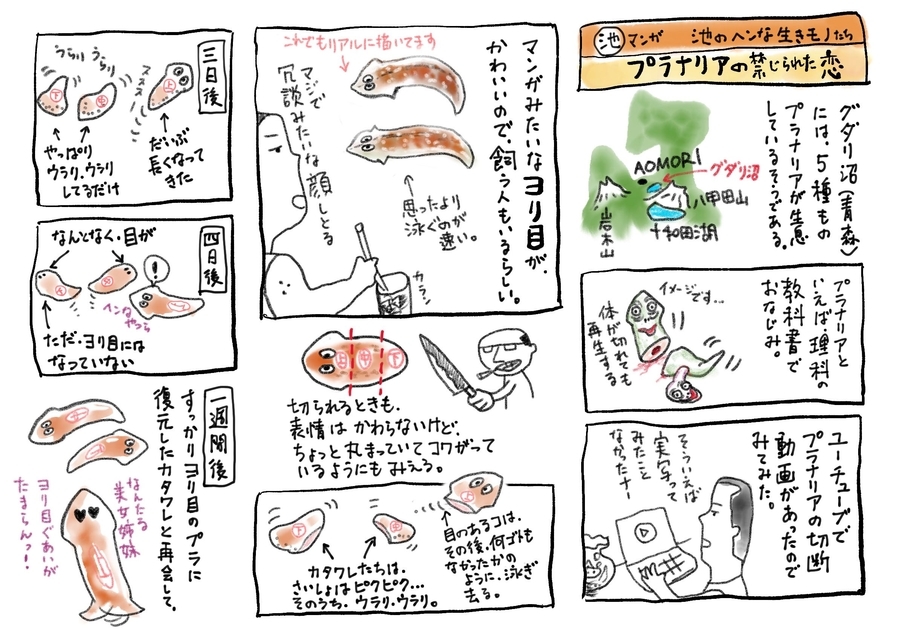 池 マンガ 池のヘンな生きモノたち
プラナリアの禁じられた恋
グダリ沼（青森）
には、5種もの
プラナリアが生息
しているそうである。
AOMORI
グダリ沼
八甲田山
十和田湖
岩木山
プラナリアと
いえば理科の
教科書で
おなじみ。
イメージです…
体が切れても
再生する
ユーチューブで
プラナリアの切断
動画があったので
みてみた。
そういえば
実写って
みたこと
なかったナー
マンガみたいなヨリ目が、
かわいいので、飼う人もいるらしい。
これでもリアルに描いてます
マジで
冗談みたいな顔しとる
思ったより
泳ぐのが
速い。
カラン
目
中
下
切られるときも、
表情はかわらないけど、
ちょっと丸まっていてコワがって
いるようにもみえる。
上
中
下
目のあるコは、
その後、何ゴトも
なかったかの
ように、泳ぎ
去る。
カタワレたちは、
さいしょはピクピク…
そのうち、ウラリ・ウラリ。
三日後
うらり うらり
スス〜
上
中
下
だいぶ
長くなって
きた
やっぱり
ウラリ、ウラリ
してるだけ
四日後
なんとなく、目が
!
ヘンなやつら
ただ、ヨリ目には
なっていない
一週間後
すっかりヨリ目のプラに
復元したカタワレと再会して。
なんたる
美女姉妹
ヨリ目ぐあいが
たまらんっ！